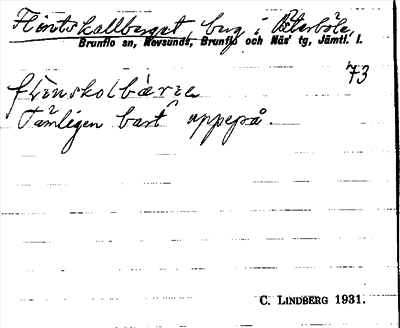 Flintskallberget, berg i Österböle,
Brunflo sn, Revsunds, Brunflo och Näs' tg, Jämtl. l.
73
flinskolbærre
Tämligen bart uppepå.
C. LINDBERG 1931.